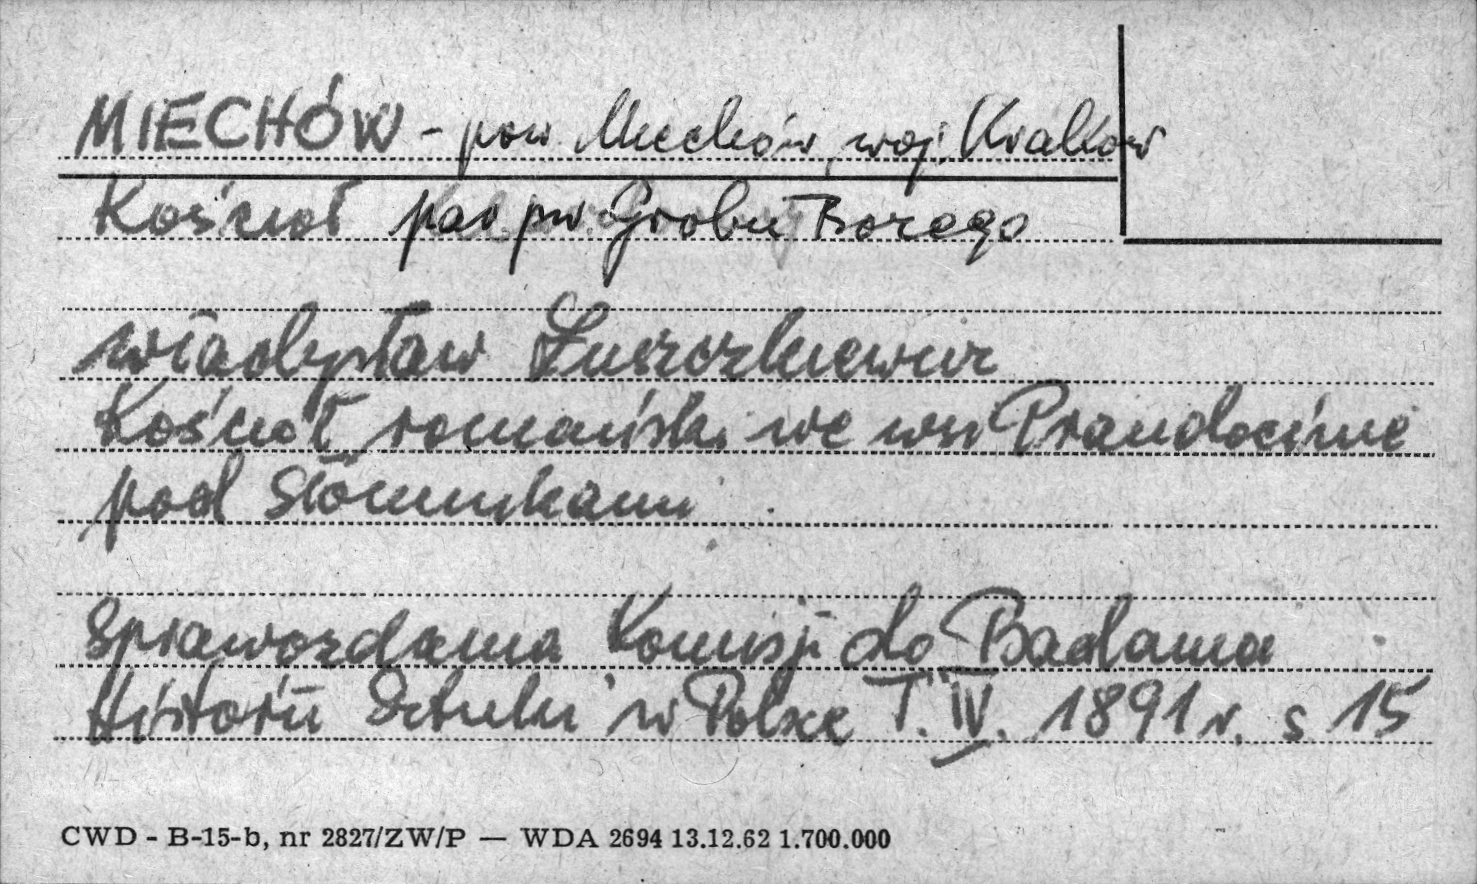 MIECHÓW - pow Miechów, woj. Kraków
Kościół par pw. Grobu Bożego
Władysław Łuszczkiewicz
Kościół romański we wsi Prandocinie
pod Słomnikami
Sprawozdania Komisji do Badania
Historii Sztuki w Polsce T. IV. 1891 r. s 15
CWD - B-15-b, nr 2827/ZW/P — WDA 2694 13.12.62 1.700.000